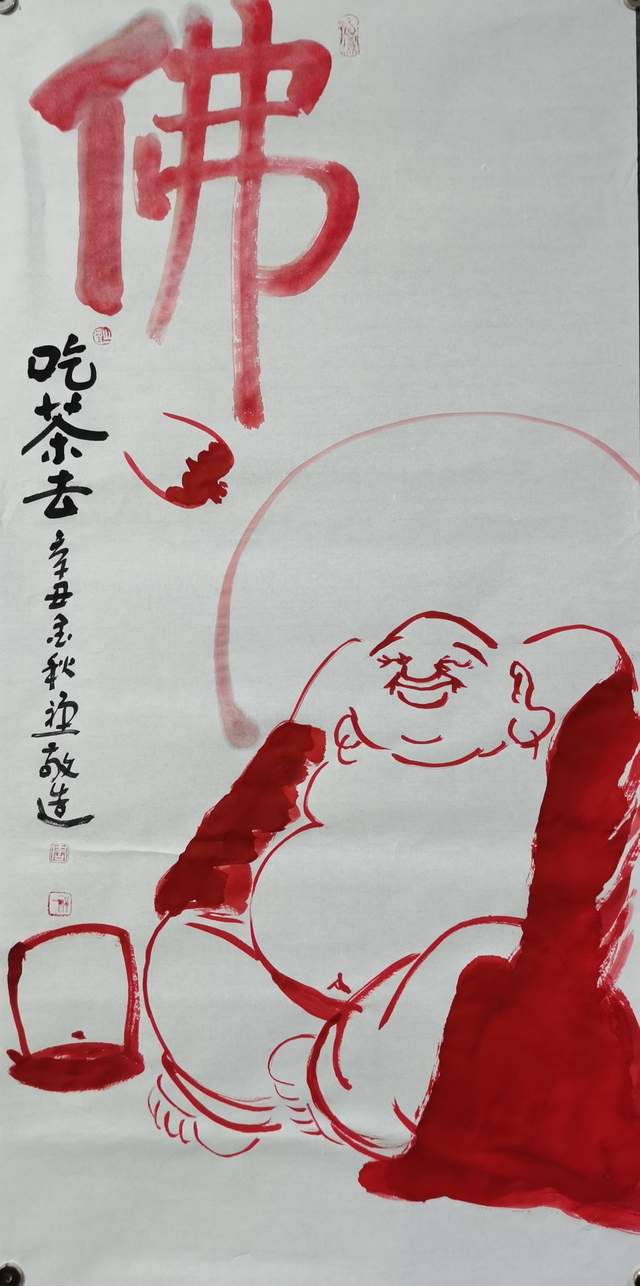 佛
吃茶去
辛丑金秋 敬造